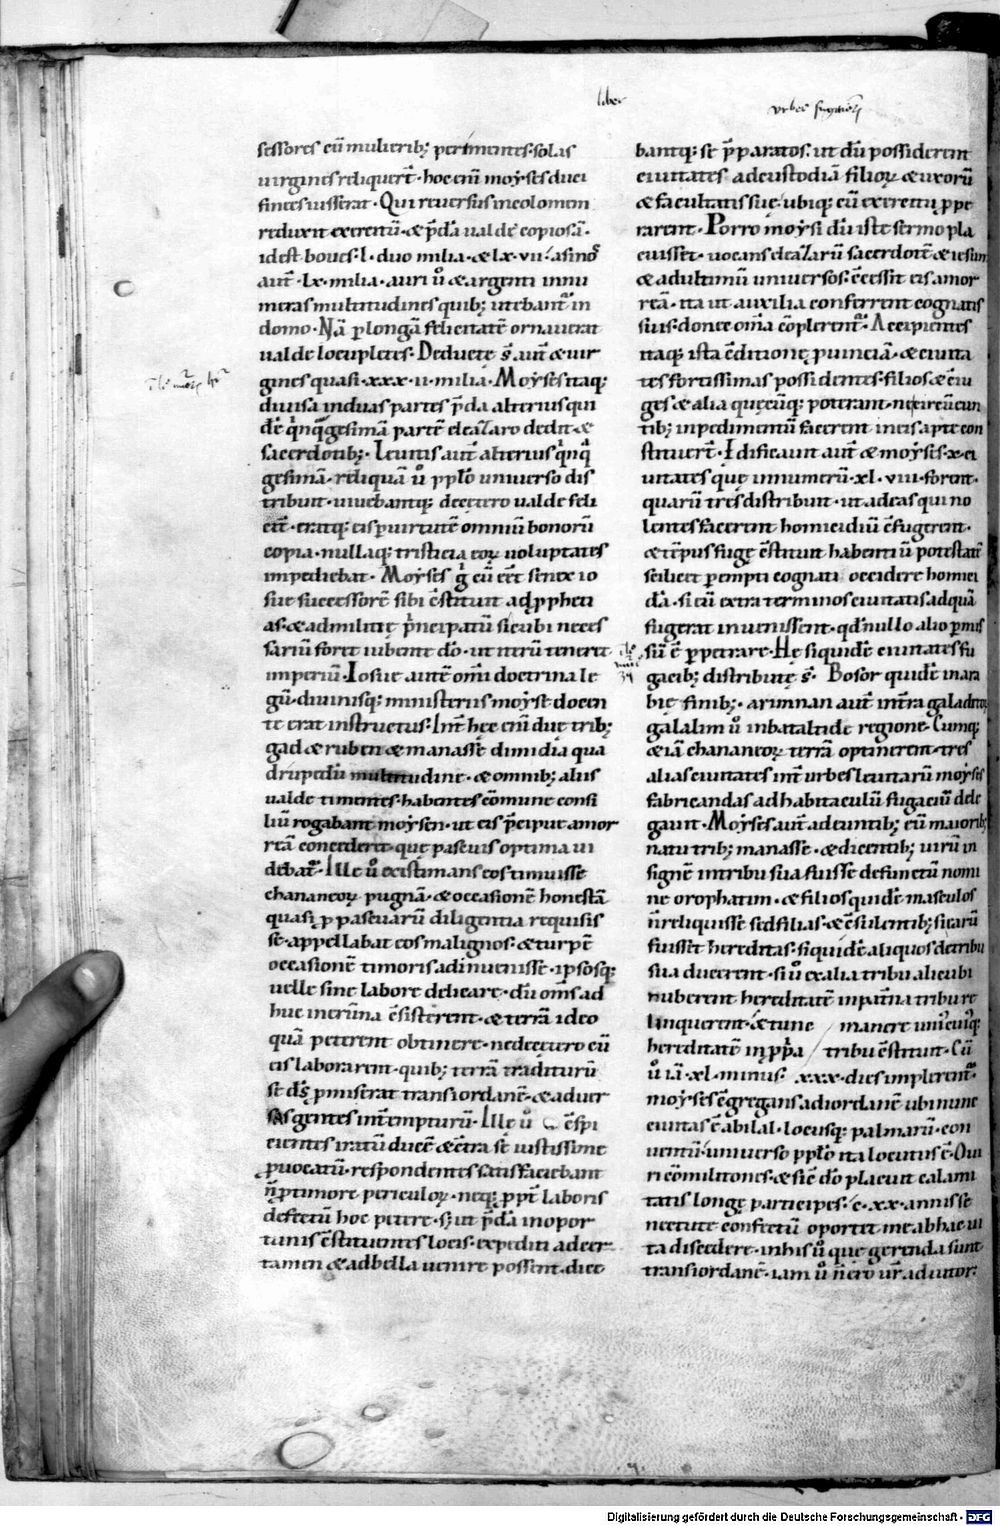 liber
sessores cũ mulierib; perimentes. solas
uirgines reliquer̃t. hoc enĩ moẏses duci
fines iusserat. Qui reuersus incolomem
reduxit exercitũ. & p̃dã ualde copiosã.
idest boues. l. duo milia. & lx. vii. asinoꝝ
aut̃. lx. milia. auri ũ & argenti innu
meras multitudines quib; utebant᷑ in
domo. Nã ꝑ longã felicitatẽ ornauerat
ualde locupletes. Ducte s̃ aut̃ & uir
gines quasi. xxx. ii. milia. Moẏses itaq;
diuisa in duas partes p̃da alterius qui
dẽ q̃nq̃gesimã partẽ eleazaro dedit &
sacerdotib;. Leuitis aut̃ alterius q̃nq̃
gesimã. reliquã ũ pp̃lo uniuerso dis
tribuit. uiuebantq; decetero ualde feli
cit̃. eratq; eis ꝑ uirtutẽ omniũ bonorũ
copia. nullaq; tristicia eoꝝ uoluptates
impediebat. Moẏses g̃ cũ eẽt senex io
sue successorẽ sibi c̃stituit ad ꝓpheti
as. & ad militię p̃ncipatũ sicubi neces
sariũ foret iubente dõ. ut iterũ teneret
imperiũ. Iosue autẽ om̃i doctrina le
gũ. diuinisq; ministeriis moẏse docen
te erat instructus. Int̃ hęc enĩ due trib;
gad & ruben & manasse dimidia qua
drupedũ multitudine. & omnib; aliis
ualde timentes. habentes cõmune consi
liũ rogabant moẏsen. ut eis p̃cipue amor
reã concederet. que pascuis optima ui
debat᷑. Ille ũ existimans eos timuisse
chananeoꝝ pugnã. & occasionẽ honestã
quasi ꝓ pascuarũ diligentia requisis
se. appellabat eos malignos. & turpẽ
occasionẽ timoris adinuenisse. ipsosq;
uelle sine labore delicare. dũ om̃s ad
huc in erũna c̃sisterent. & terrã ideo
quã peterent obtinere. ne decetero cũ
eis laborarent. quib; terrã traditurũ
se dš ꝓmiserat transiordanẽ. & aduer
sas gentes int̃empturũ. Ille ũ c̃spi
cientes iratũ ducẽ & c̃tra sẽ iustissime
ꝓuocatũ. respondentes satisfaciebant
ñ ꝓp timorẽ periculoꝝ. neq; ꝓpt̃ laboris
defectũ hoc petere. s; ut p̃dã in opor
tunis c̃stituentes locis. expediti ad cer
tamen & ad bella uenire possent. dicc
urbes fugitiuoꝝ
bantq; se p̃paratos. ut dũ possiderent
ciuitates ad custodiã filioꝝ & uxorũ
& facultatis sue. ubiq; cũ exercitu ꝓpe
rarent. Porro moẏsi dũ iste sermo pla
cuisset. uocans eleazarũ sacerdotẽ & iesum
& ad ultimũ uniuersos. c̃cessit eis amor
reã. ita ut auxilia conferrent cognatis
suis. donec om̃ia cõplerent᷑. Accipientes
itaq; ista c̃ditione ꝓuinciã. & ciuita
tes fortissimas possidentes. filios & c̃iu
ges. & alia quęcũq; poterant. ne circũeun
tib; inpedimentũ facerent in eis apte con
stituer̃t. Edificauit aut̃ & moẏses. x. ci
uitates que in numerũ. xl. viii. forent.
quarũ tres distribuit. ut ad eas qui no
lentes facerent homicidiũ c̃fugerent.
& tẽpus fugę c̃stituit habenti ũ potestatẽ
scilicet ꝑempti cognati occidere homici
dã. si eũ extra terminos ciuitatis ad quã
fugerat inuenissent. qđ nullo alio ꝑmis
sũ ẽ ꝑpetrare. Hę siquidẽ ciuitates fu
gacib; distribute s̃. Bosor quidẽ in ara
bie finib;. arimnan aut̃ in t̃ra galaditoꝝ
galalim ũ in batałtide regione. Cumq;
& iã chananeoꝝ terrã optinerent. tres
alias ciuitates int̃ urbes leuitarũ moẏses
fabricandas ad habitaculũ fugaciũ dele
gauit. Moẏses aut̃ adeuntib; eũ maiorib;
natu trib; manasse. & dicentib; uirũ in
signẽ in tribu sua fuisse defunctũ nomi
ne orophatim. & filios quidẽ masculos
ñ reliquisse sed filias. & c̃sulentib; si earũ
fuisset hereditas. siquidẽ aliquos de tribu
sua ducerent. si ũ ex alia tribu alicubi
nuberent hereditatẽ in pat̃na tribu re
linquerent. & tunc manere uniũcuiq;
hereditatẽ in ꝓp̃a tribu c̃stituit. Cũ
ũ iã. xl. minus. xxx. dies implerent᷑.
moẏses c̃gregans ad iordanẽ ubi nunc
ciuitas ẽ abila. locusq; palmarũ. con
uentũ. uniuerso pp̃lo ita locutus ẽ. O ui
ri cõmilitones. & sic̃ dõ placuit calami
tatis longę participes. c. xx. annis se
nectute confectũ oportet me ab hac ui
ta discedere. in his ũ que gerenda sunt
transiordanẽ. iam ũ ñ ero ur̃ adiutor.
Digitalisierung gefördert durch die Deutsche Forschungsgemeinschaft - DFG